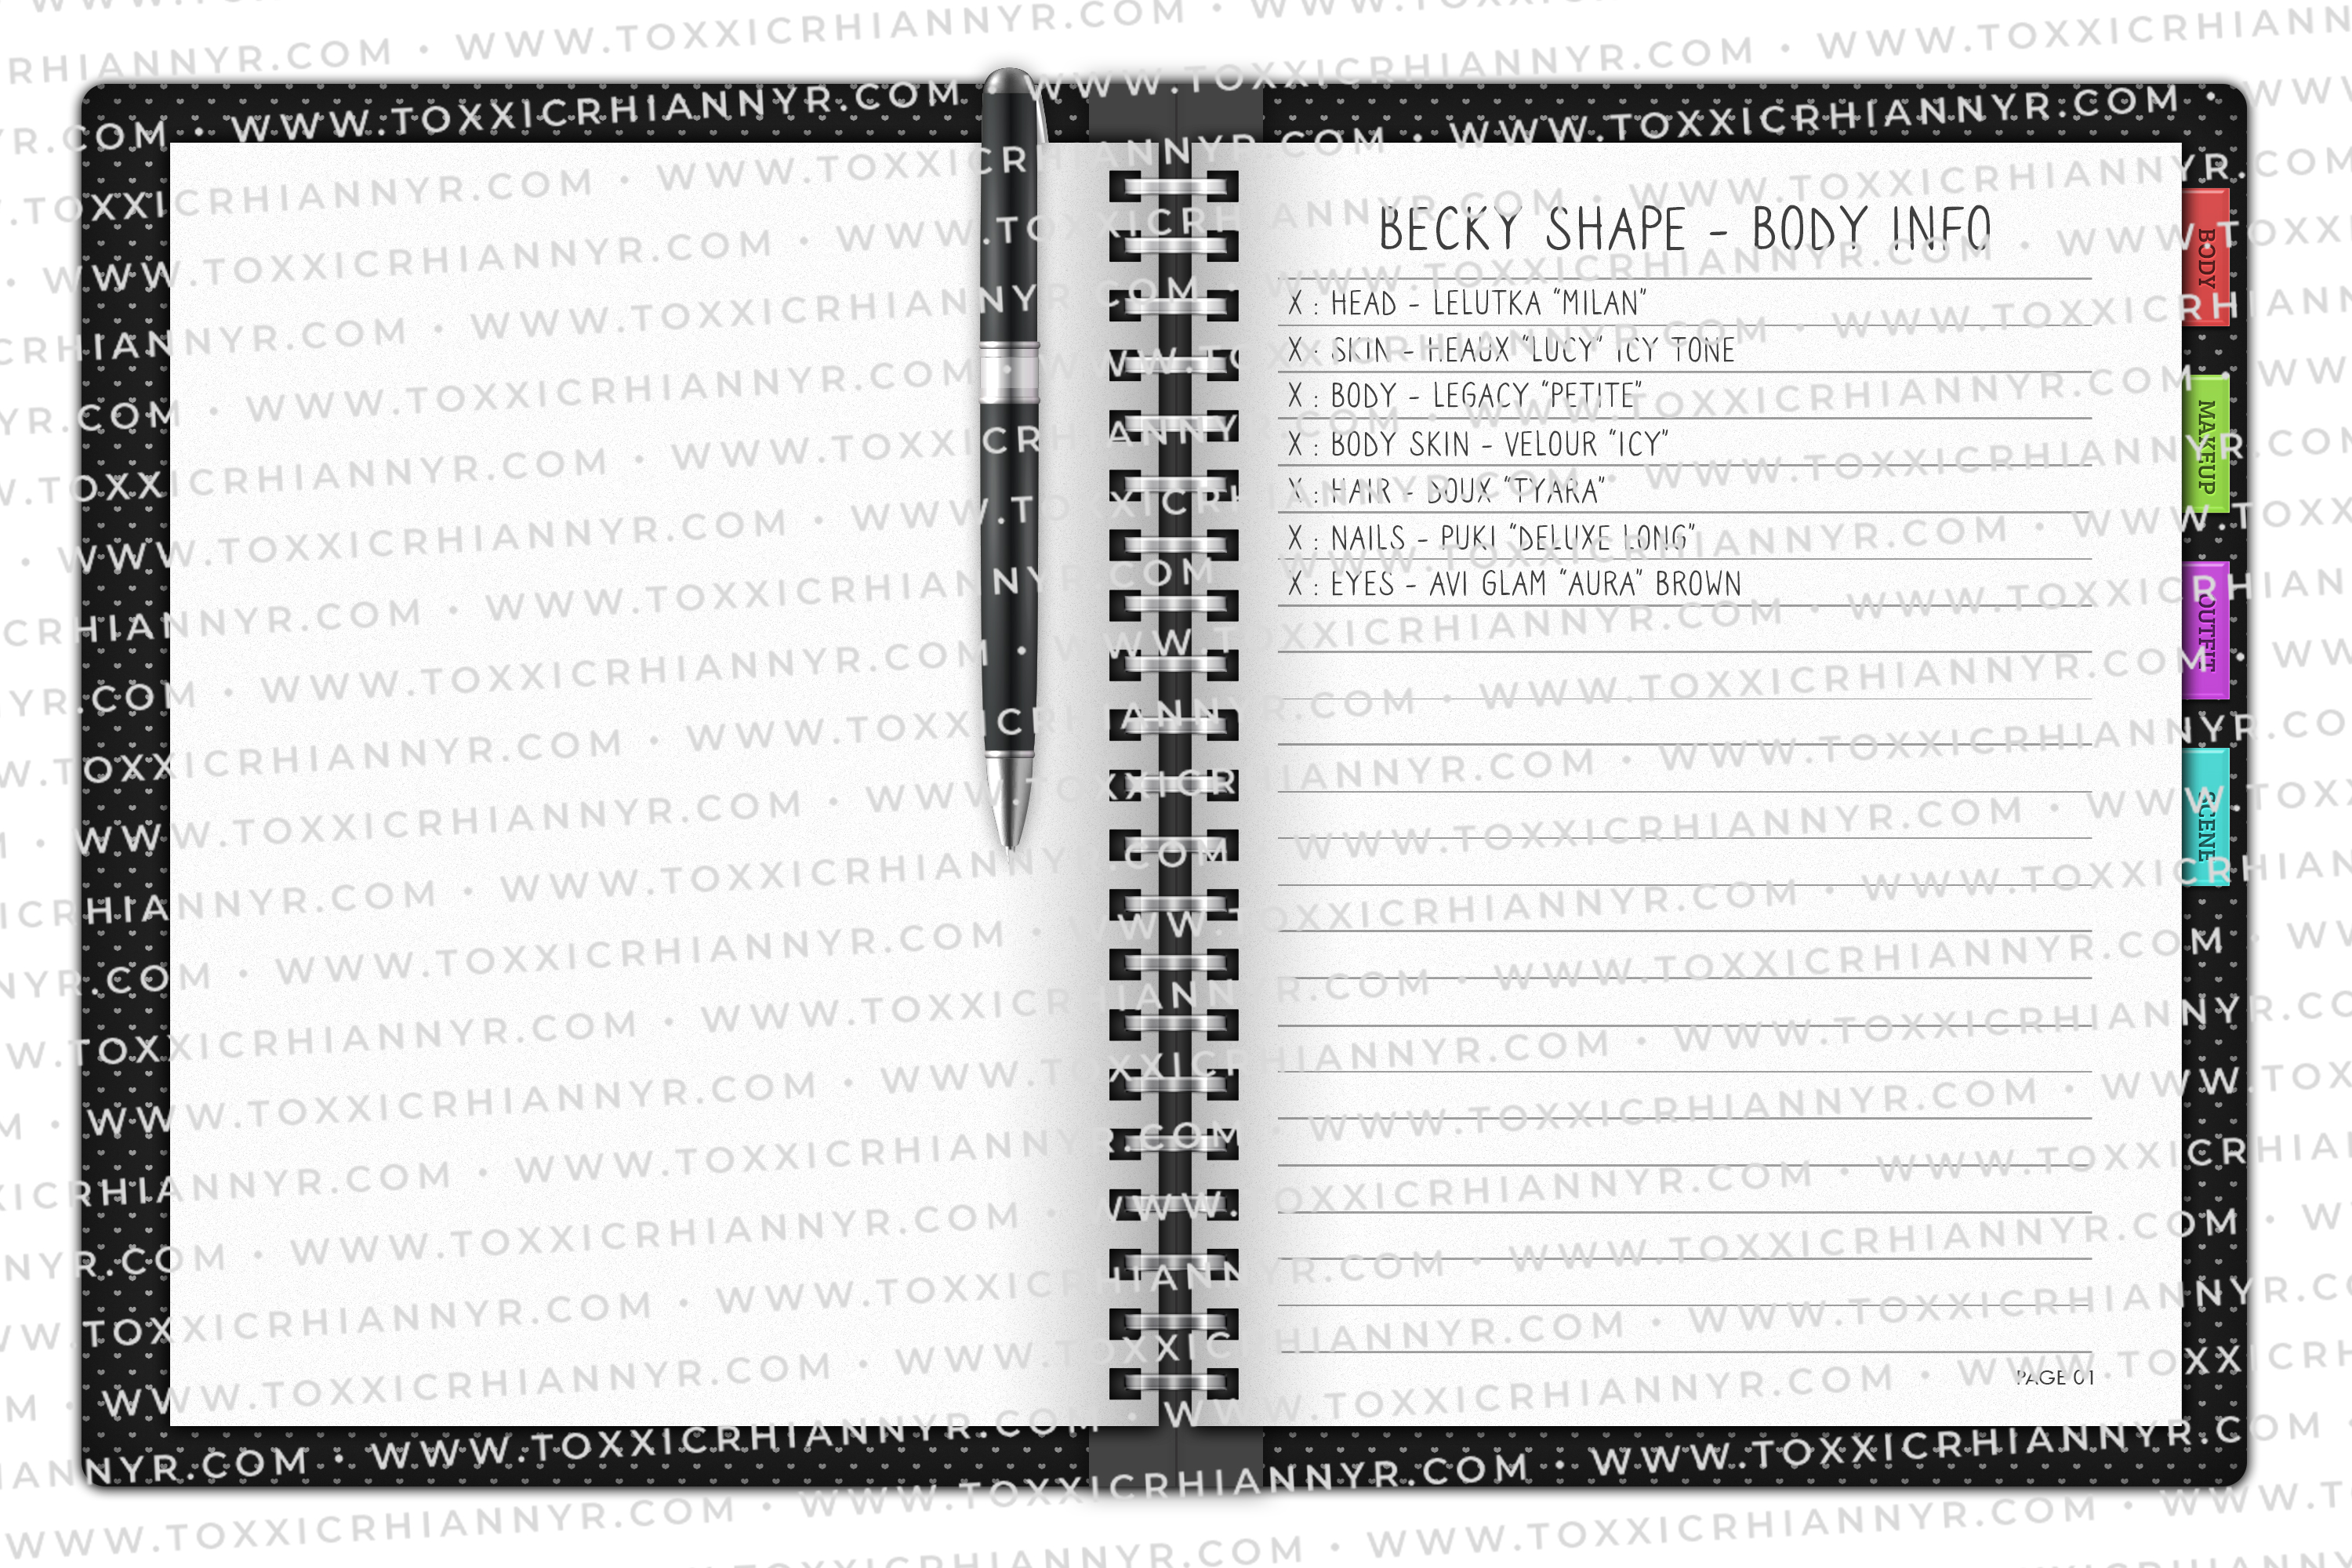 BECKY SHAPE - BODY INFO
X : HEAD - LELUTKA "MILAN"
X : SKIN - HEAUX "LUCY" ICY TONE
X : BODY - LEGACY "PETITE"
X : BODY SKIN - VELOUR "ICY"
X : HAIR - DOUX "TYARA"
X : NAILS - PUKI "DELUXE LONG"
X : EYES - AVI GLAM "AURA" BROWN
PAGE 01
BODY
MAKEUP
OUTFIT
SCENE
WWW.TOXXICRHIANNYR.COM • WWW.TOXXICRHIANNYR.COM